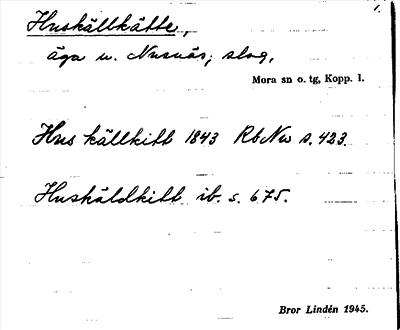 1.
Huskällkätte,
äga u. Nusnäs; slog,
Mora sn o. tg, Kopp. l.
Hus källkitt 1843 RbNw s. 423.
Huskäldkitt ib. s. 675.
Bror Lindén 1945.